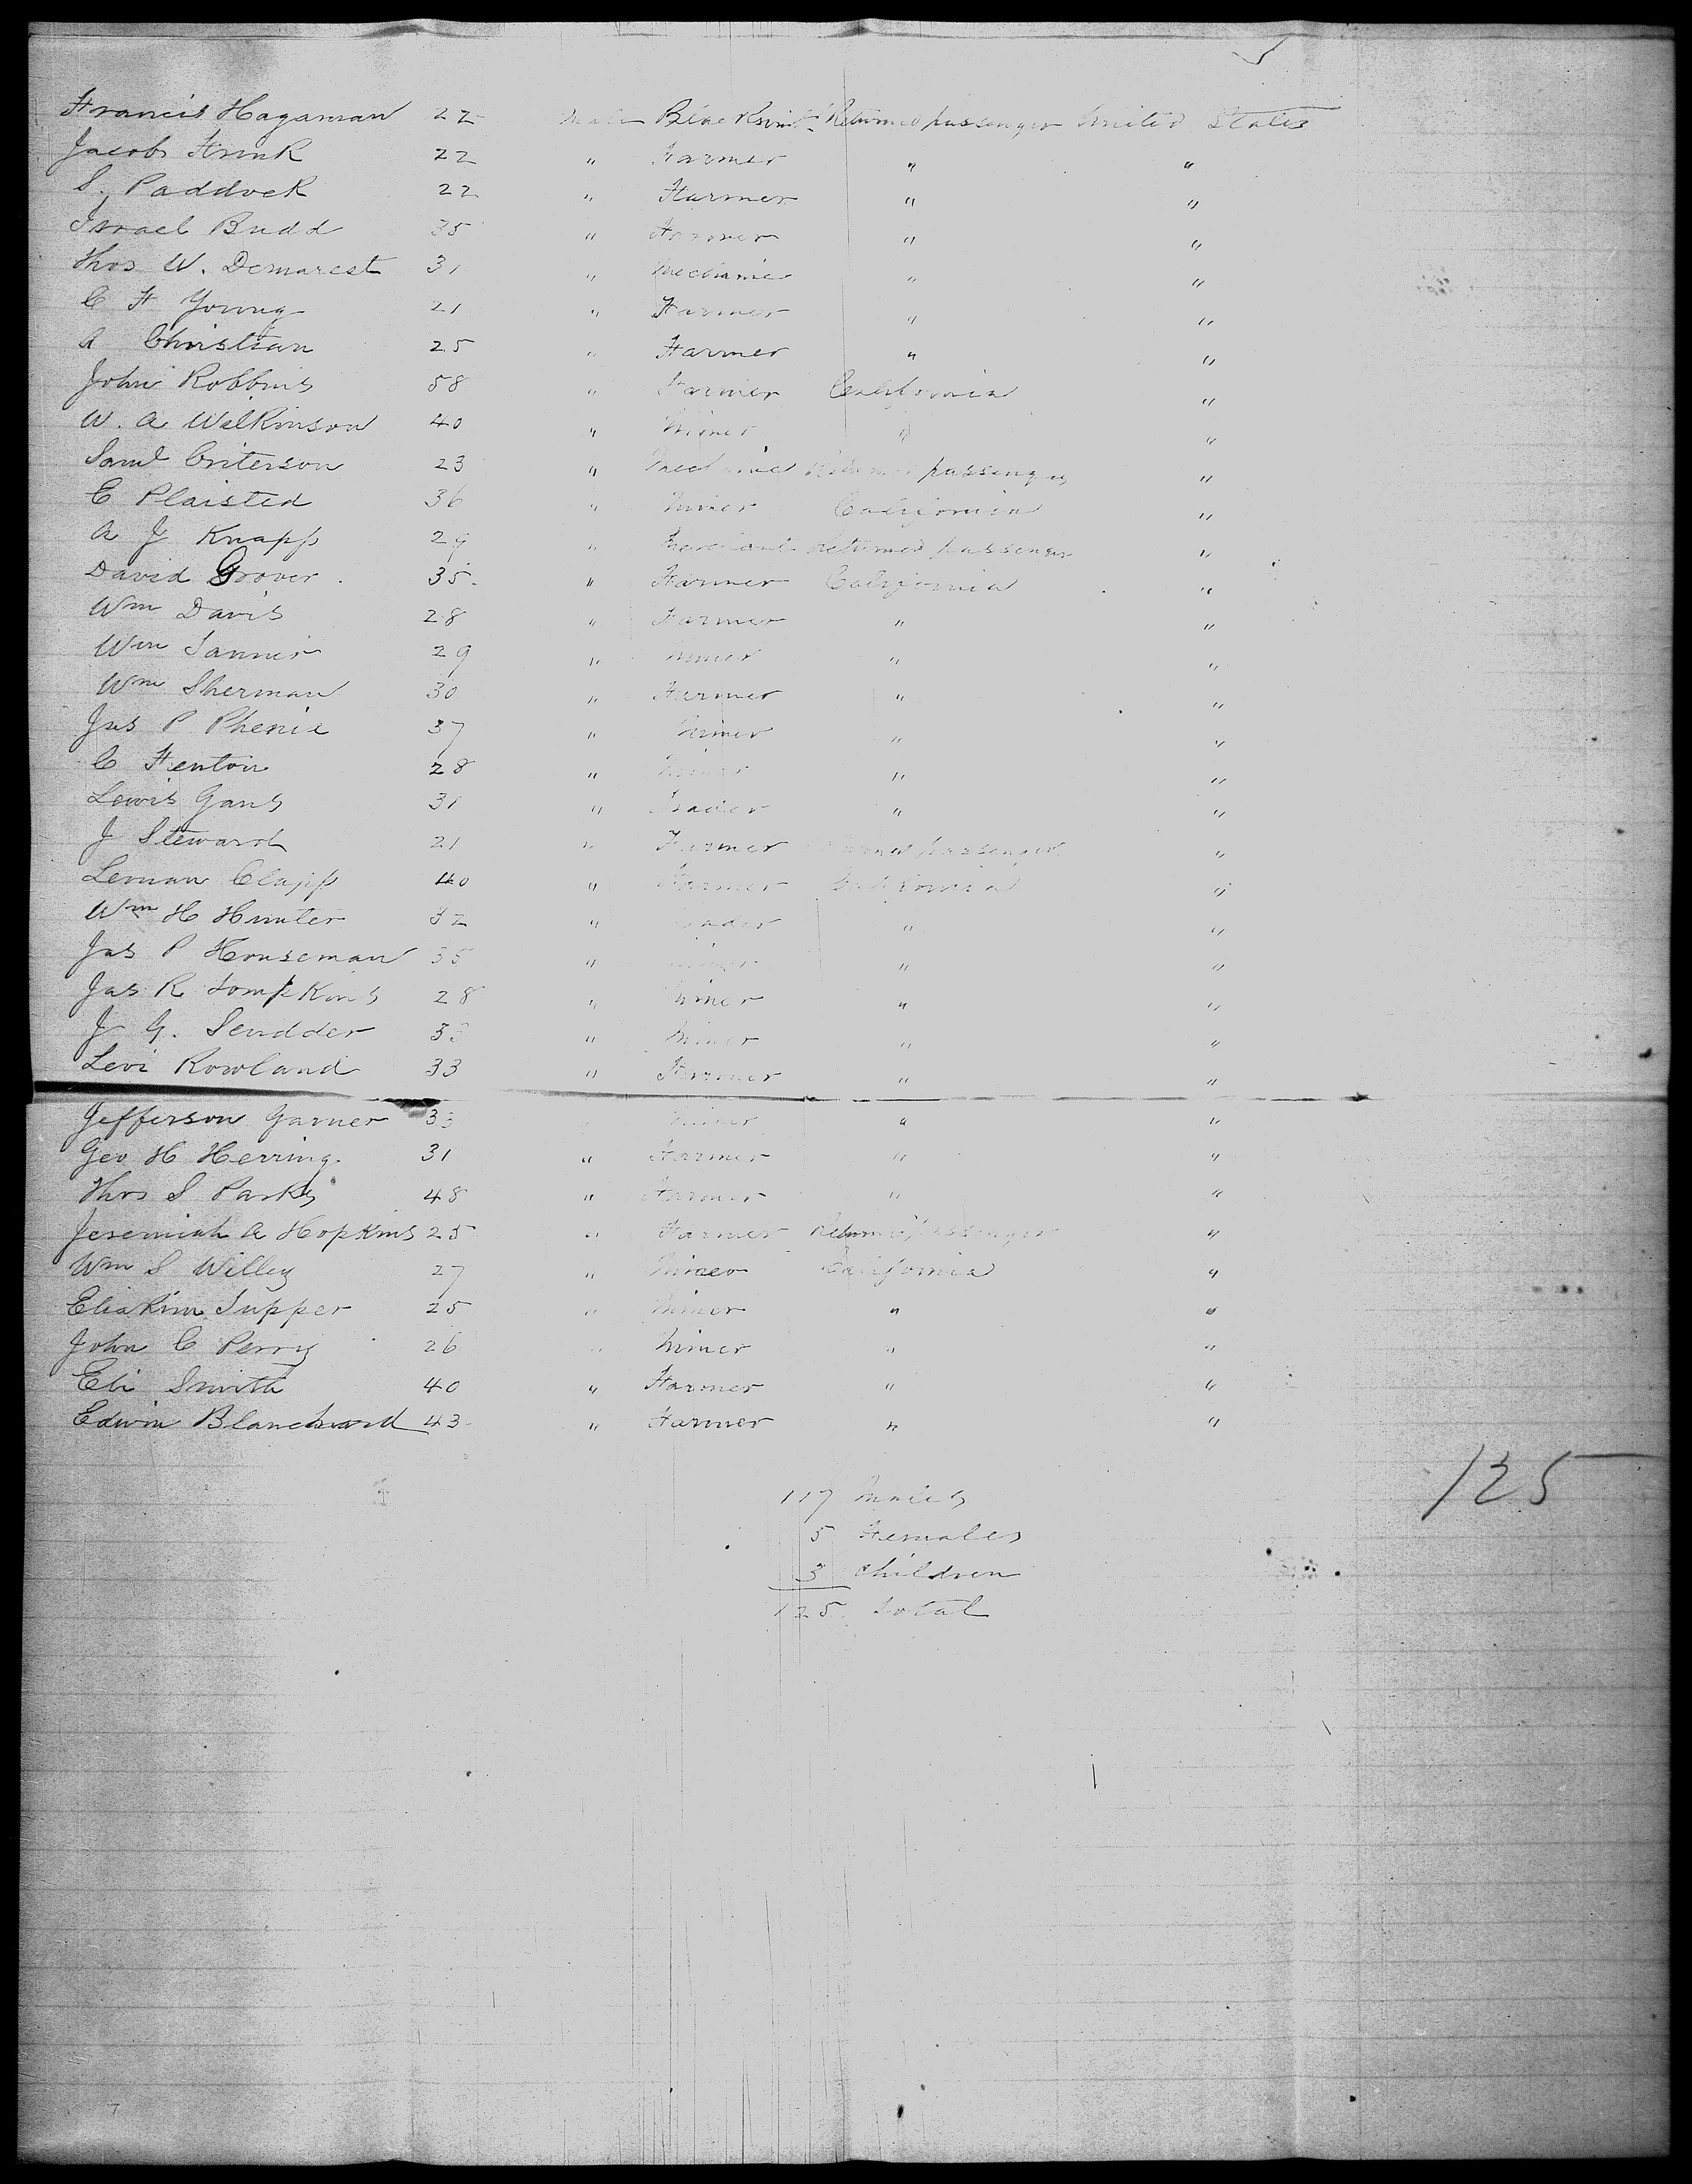 Francis Hagaman 22 Male BlackSmith Returned passenger United States
Jacob Frink 22 " Farmer " "
S. Paddock 22 " Farmer " "
Israel Budd 35 " Farmer " "
Thos W. Demarest 31 " Mechanic " "
C F Young 21 " Farmer " "
A Christian 25 " Farmer " "
John Robbins 58 " Farmer California "
W. A Wilkinson 40 " Miner " "
Saml Criterson 23 " Mechanic Returned passenger "
E Plaisted 36 " Miner California "
A J Knapp 29 " Merchant Returned passenger "
David Grover 35 " Farmer California "
Wm Davis 28 " Farmer " "
Wm Tanner 29 " Miner " "
Wm Sherman 30 " Farmer " "
Jas P Phenix 37 " Miner " "
C Fenton 28 " Miner " "
Lewis Gans 31 " Trader " "
J Steward 21 " Farmer Returned passenger "
Leman Clapp 40 " Farmer California "
Wm H Hunter 32 " Trader " "
Jas P Houseman 35 " " "
Jas R Tompkins 28 " Miner " "
J G. Scudder 33 " Miner " "
Levi Rowland 33 " Farmer " "
Jefferson Garner 33 Miner " "
Geo H Herring 31 " Farmer " "
Thos S Parks 48 " Farmer " "
Jeremiah A Hopkins 25 " Farmer Returned passenger "
Wm S Willey 27 " Miner California "
Eliakim Tupper 25 " Miner " "
John C Perry 26 " Miner " "
Eli Smith 40 " Farmer " "
Edwin Blanchard 43 " Farmer " "
125
117 Males
5 Females
3 Children
125 Total